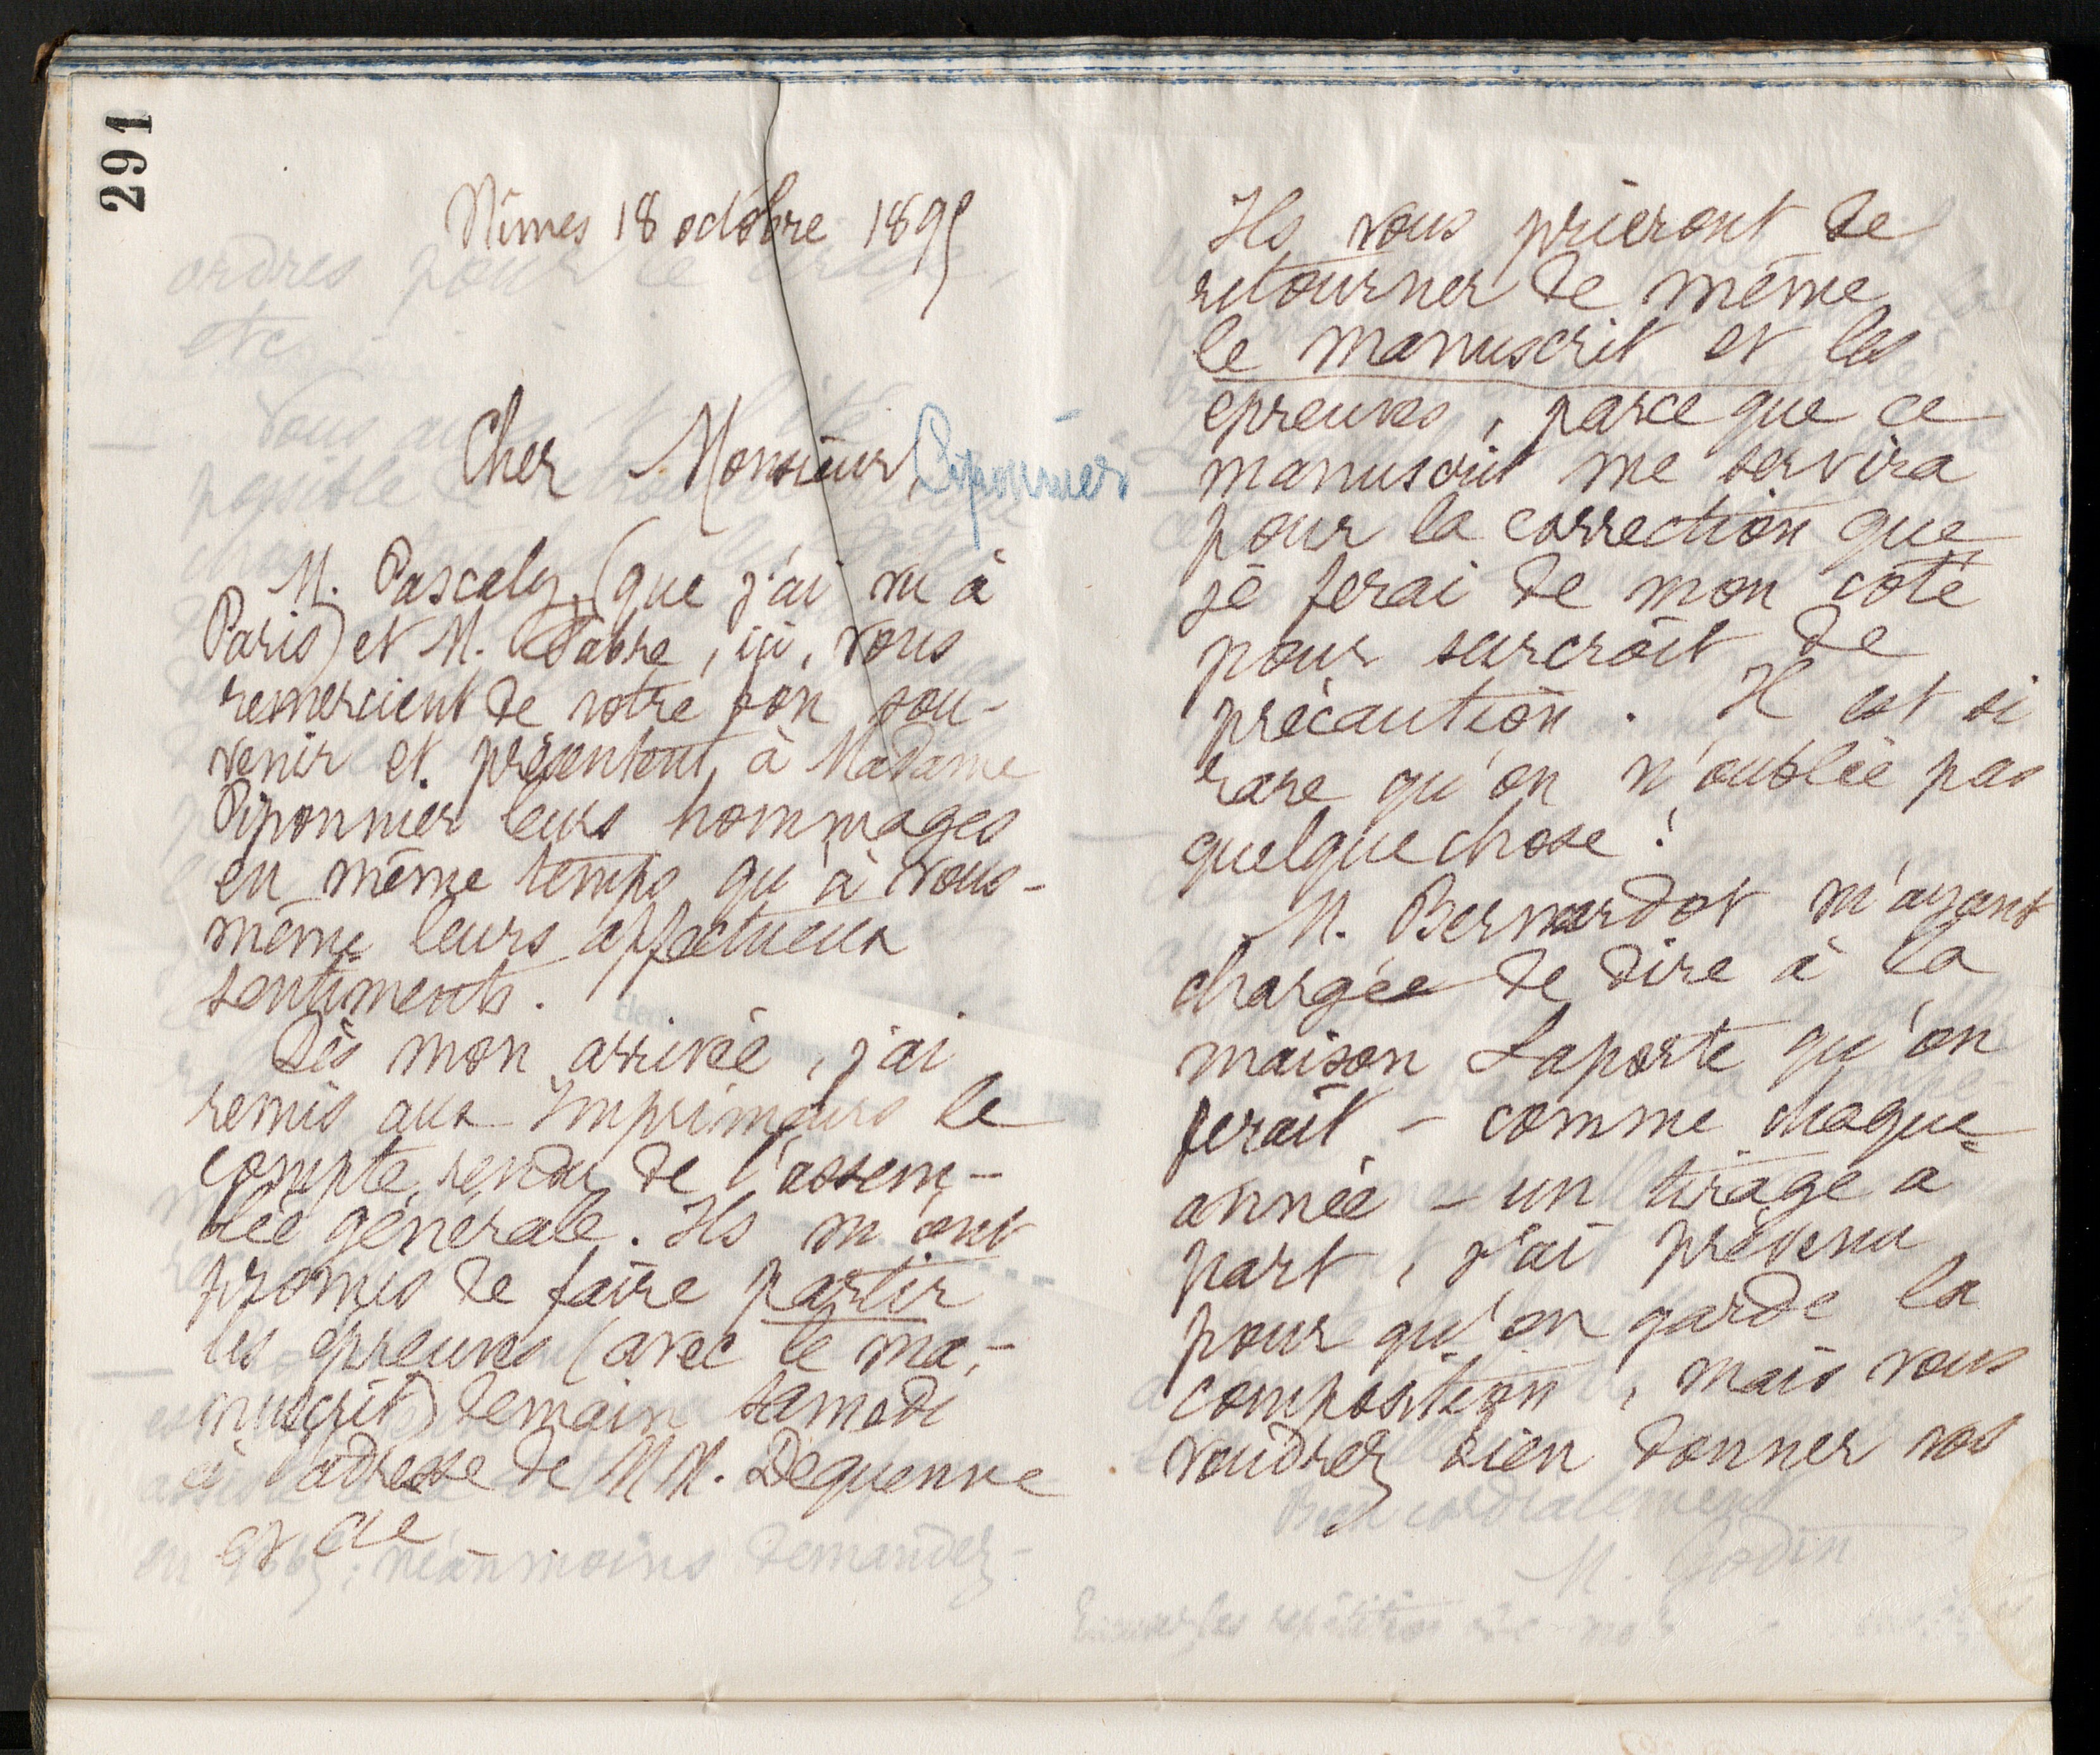 291
Nîmes 18 octobre 1895
Cher Monsieur, Piponnier
M. Pascaly, (que j'ai vu à
Paris) et M. Fabre, ici, vous
remercient de votre bon sou-
venir et présentent à Madame
Piponnier leurs hommages
en même temps qu'à vous-
même leurs affectueux
sentiments.
Dès mon arrivée, j'ai
remis aux Imprimeurs le
compte-rendu de l'assem-
blée générale. Ils m'ont
promis de faire partir
les épreuves (avec le ma-
nuscrit) demain samedi
à l'adresse de MM. Dequenne
et Cie
Ils vous prieront de
retourner de même
le manuscrit et les
épreuves, parce que ce
manuscrit me servira
pour la correction que
je ferai de mon côté
pour surcroît de
précaution. Il est si
rare qu'on n'oublie pas
quelque chose !
M. Bernardot m'ayant
chargée de dire à la
maison Laporte qu'on
ferait - comme chaque
année - un tirage à
part, j'ai prévenu
pour qu'on garde la
composition, mais vous
voudrez bien donner vos